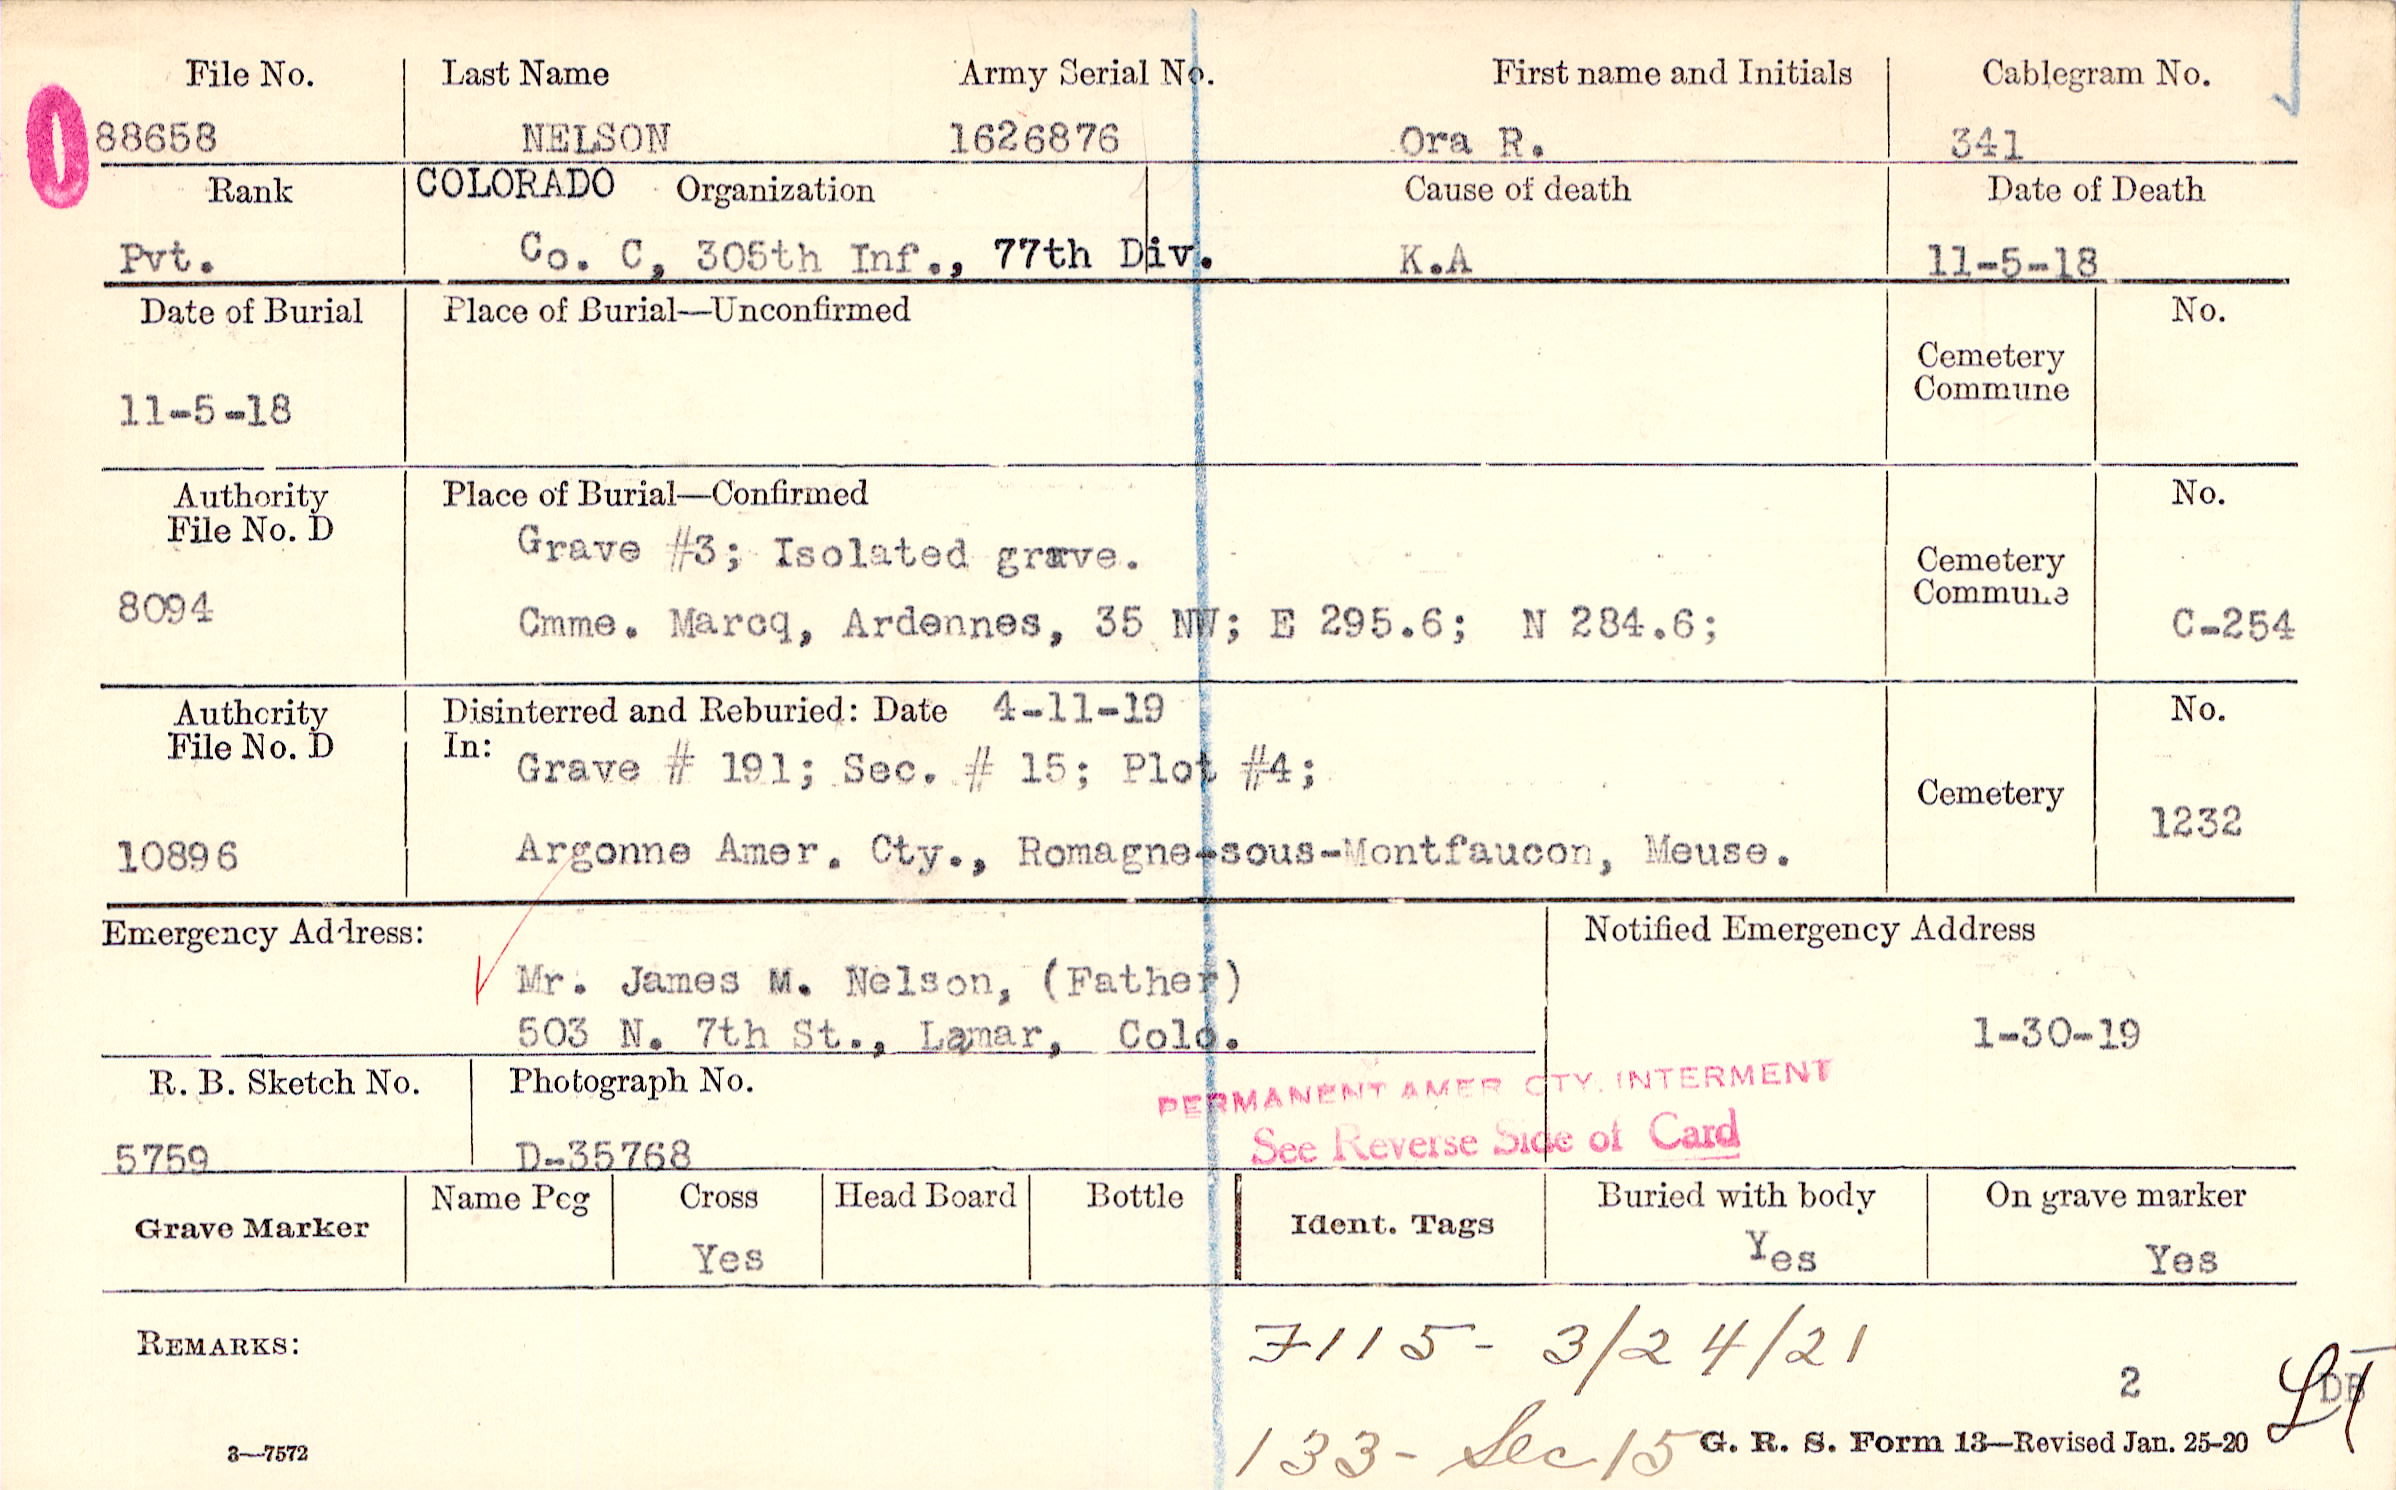 File No. Last Name Army Serial No. First name and Initials Cablegram No.
88658 NELSON 1626876 Ora R. 341
Rank COLORADO Organization Cause of death Date of Death
Pvt. Co. C, 305th Inf., 77th Div. K.A 11-5-18
Date of Burial Place of Burial—Unconfirmed No.
Cemetery
Commune
11-5-18
Authority Place of Burial—Confirmed No.
File No. D
Grave #3; Isolated grave.
Cemetery
Commune
8094 Cmme. Marcq, Ardennes, 35 NW; E 295.6; N 284.6; C-254
Authority Disinterred and Reburied: Date 4-11-19 No.
File No. D In:
Grave # 191; Sec. # 15; Plot #4;
Cemetery 1232
10896 Argonne Amer. Cty., Romagne-sous-Montfaucon, Meuse.
Emergency Address: Notified Emergency Address
Mr. James M. Nelson, (Father)
503 N. 7th St., Lamar, Colo. 1-30-19
R. B. Sketch No. Photograph No.
PERMANENT AMER CTY. INTERMENT
See Reverse Side of Card
5759 D-35768
Grave Marker Name Peg Cross Head Board Bottle Ident. Tags Buried with body On grave marker
Yes Yes Yes
REMARKS:
7115- 3/24/21
2
133- Sec 15
3—7572 G. R. S. Form 13—Revised Jan. 25-20